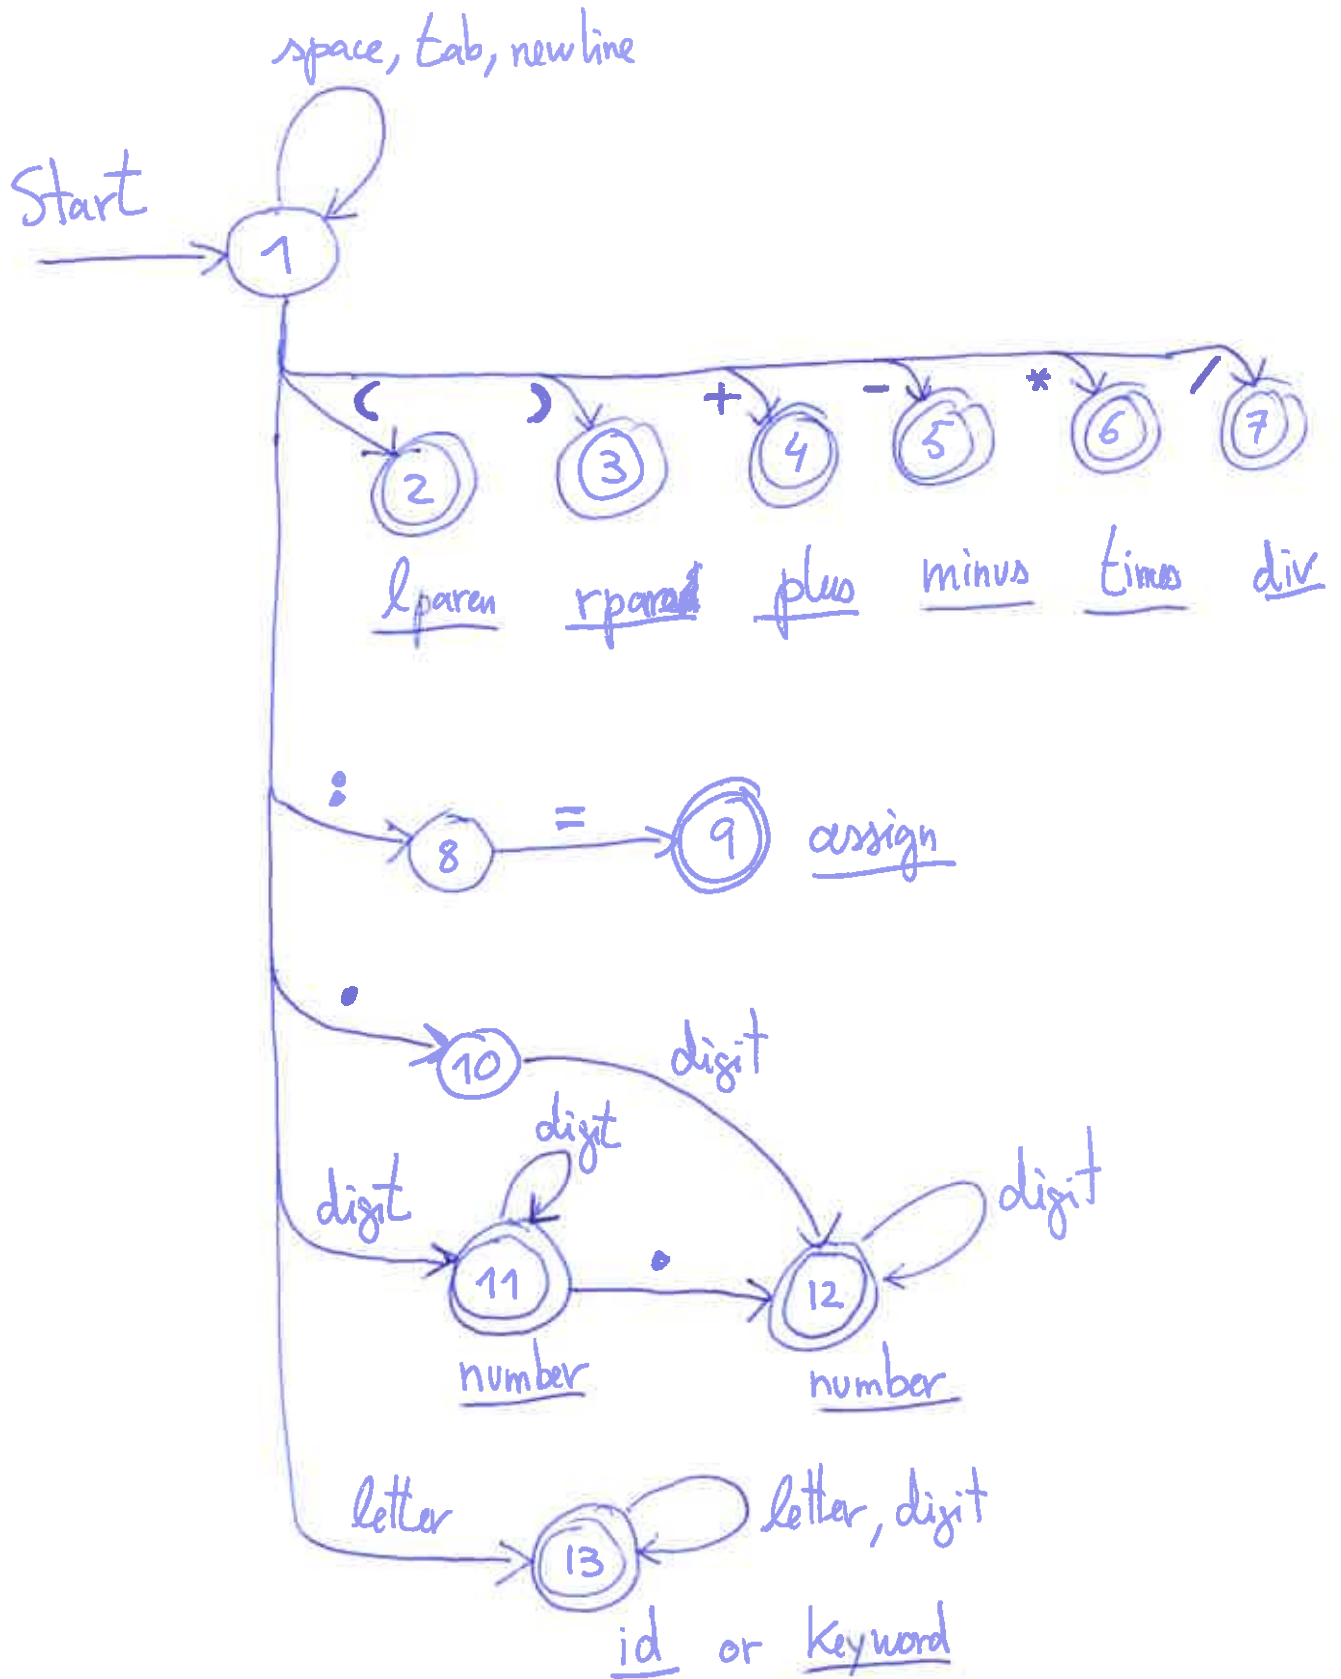 space, tab, newline
Start
1
( ) + - * /
2 3 4 5 6 7
lparen rparen plus minus times div
: =
8 9 assign
.
10 digit
digit
digit digit
11 . 12
number number
letter letter, digit
13
id or keyword